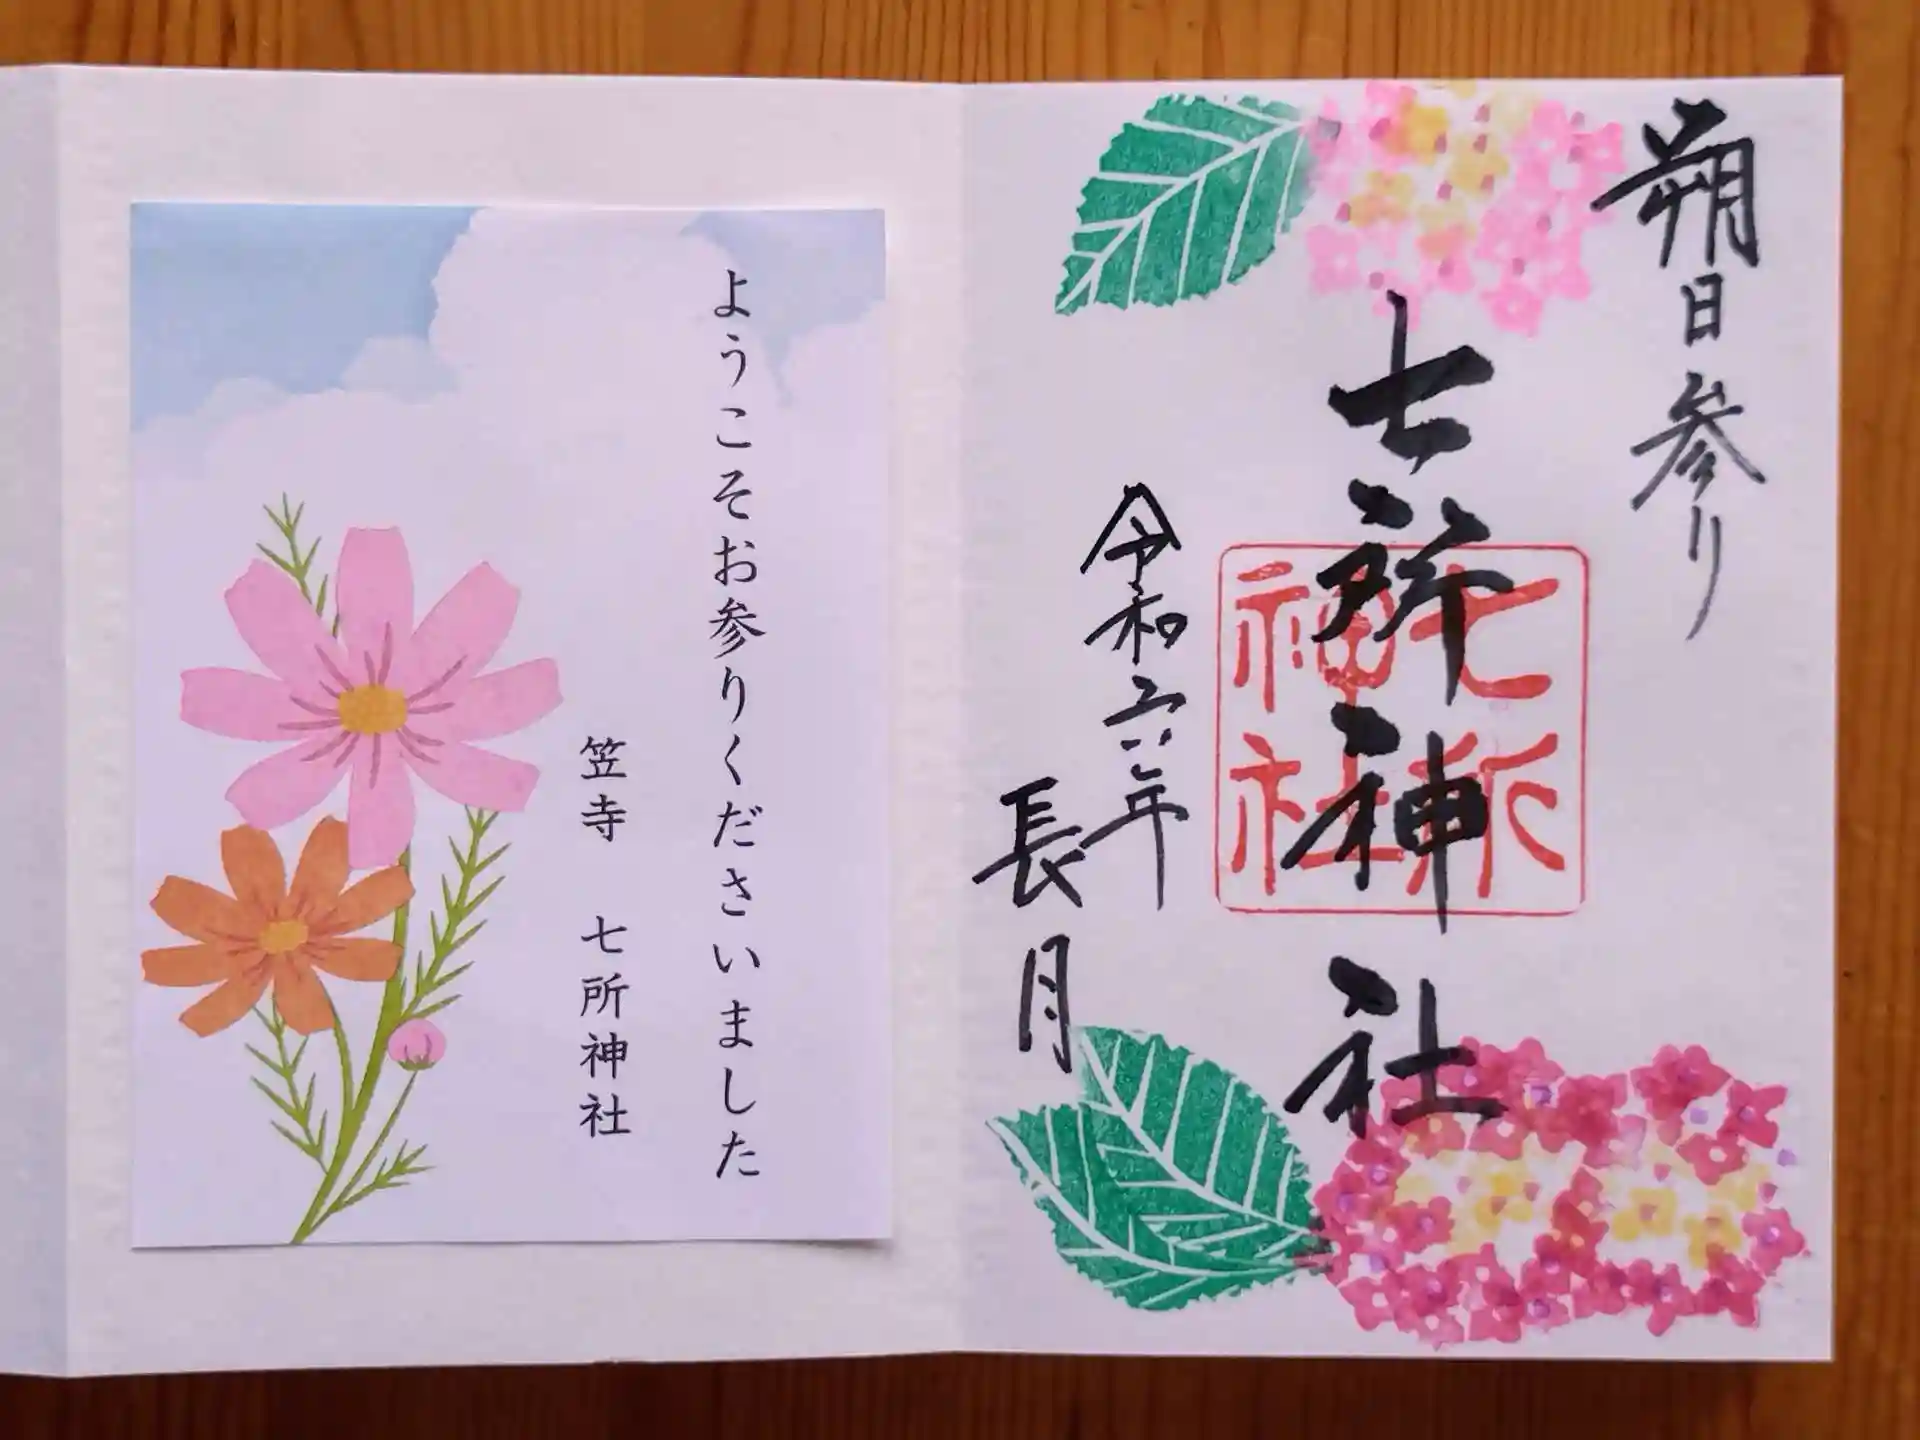 朔日参り
七所神社
七所
神社
令和六年
長月
ようこそお参りくださいました
笠寺　七所神社